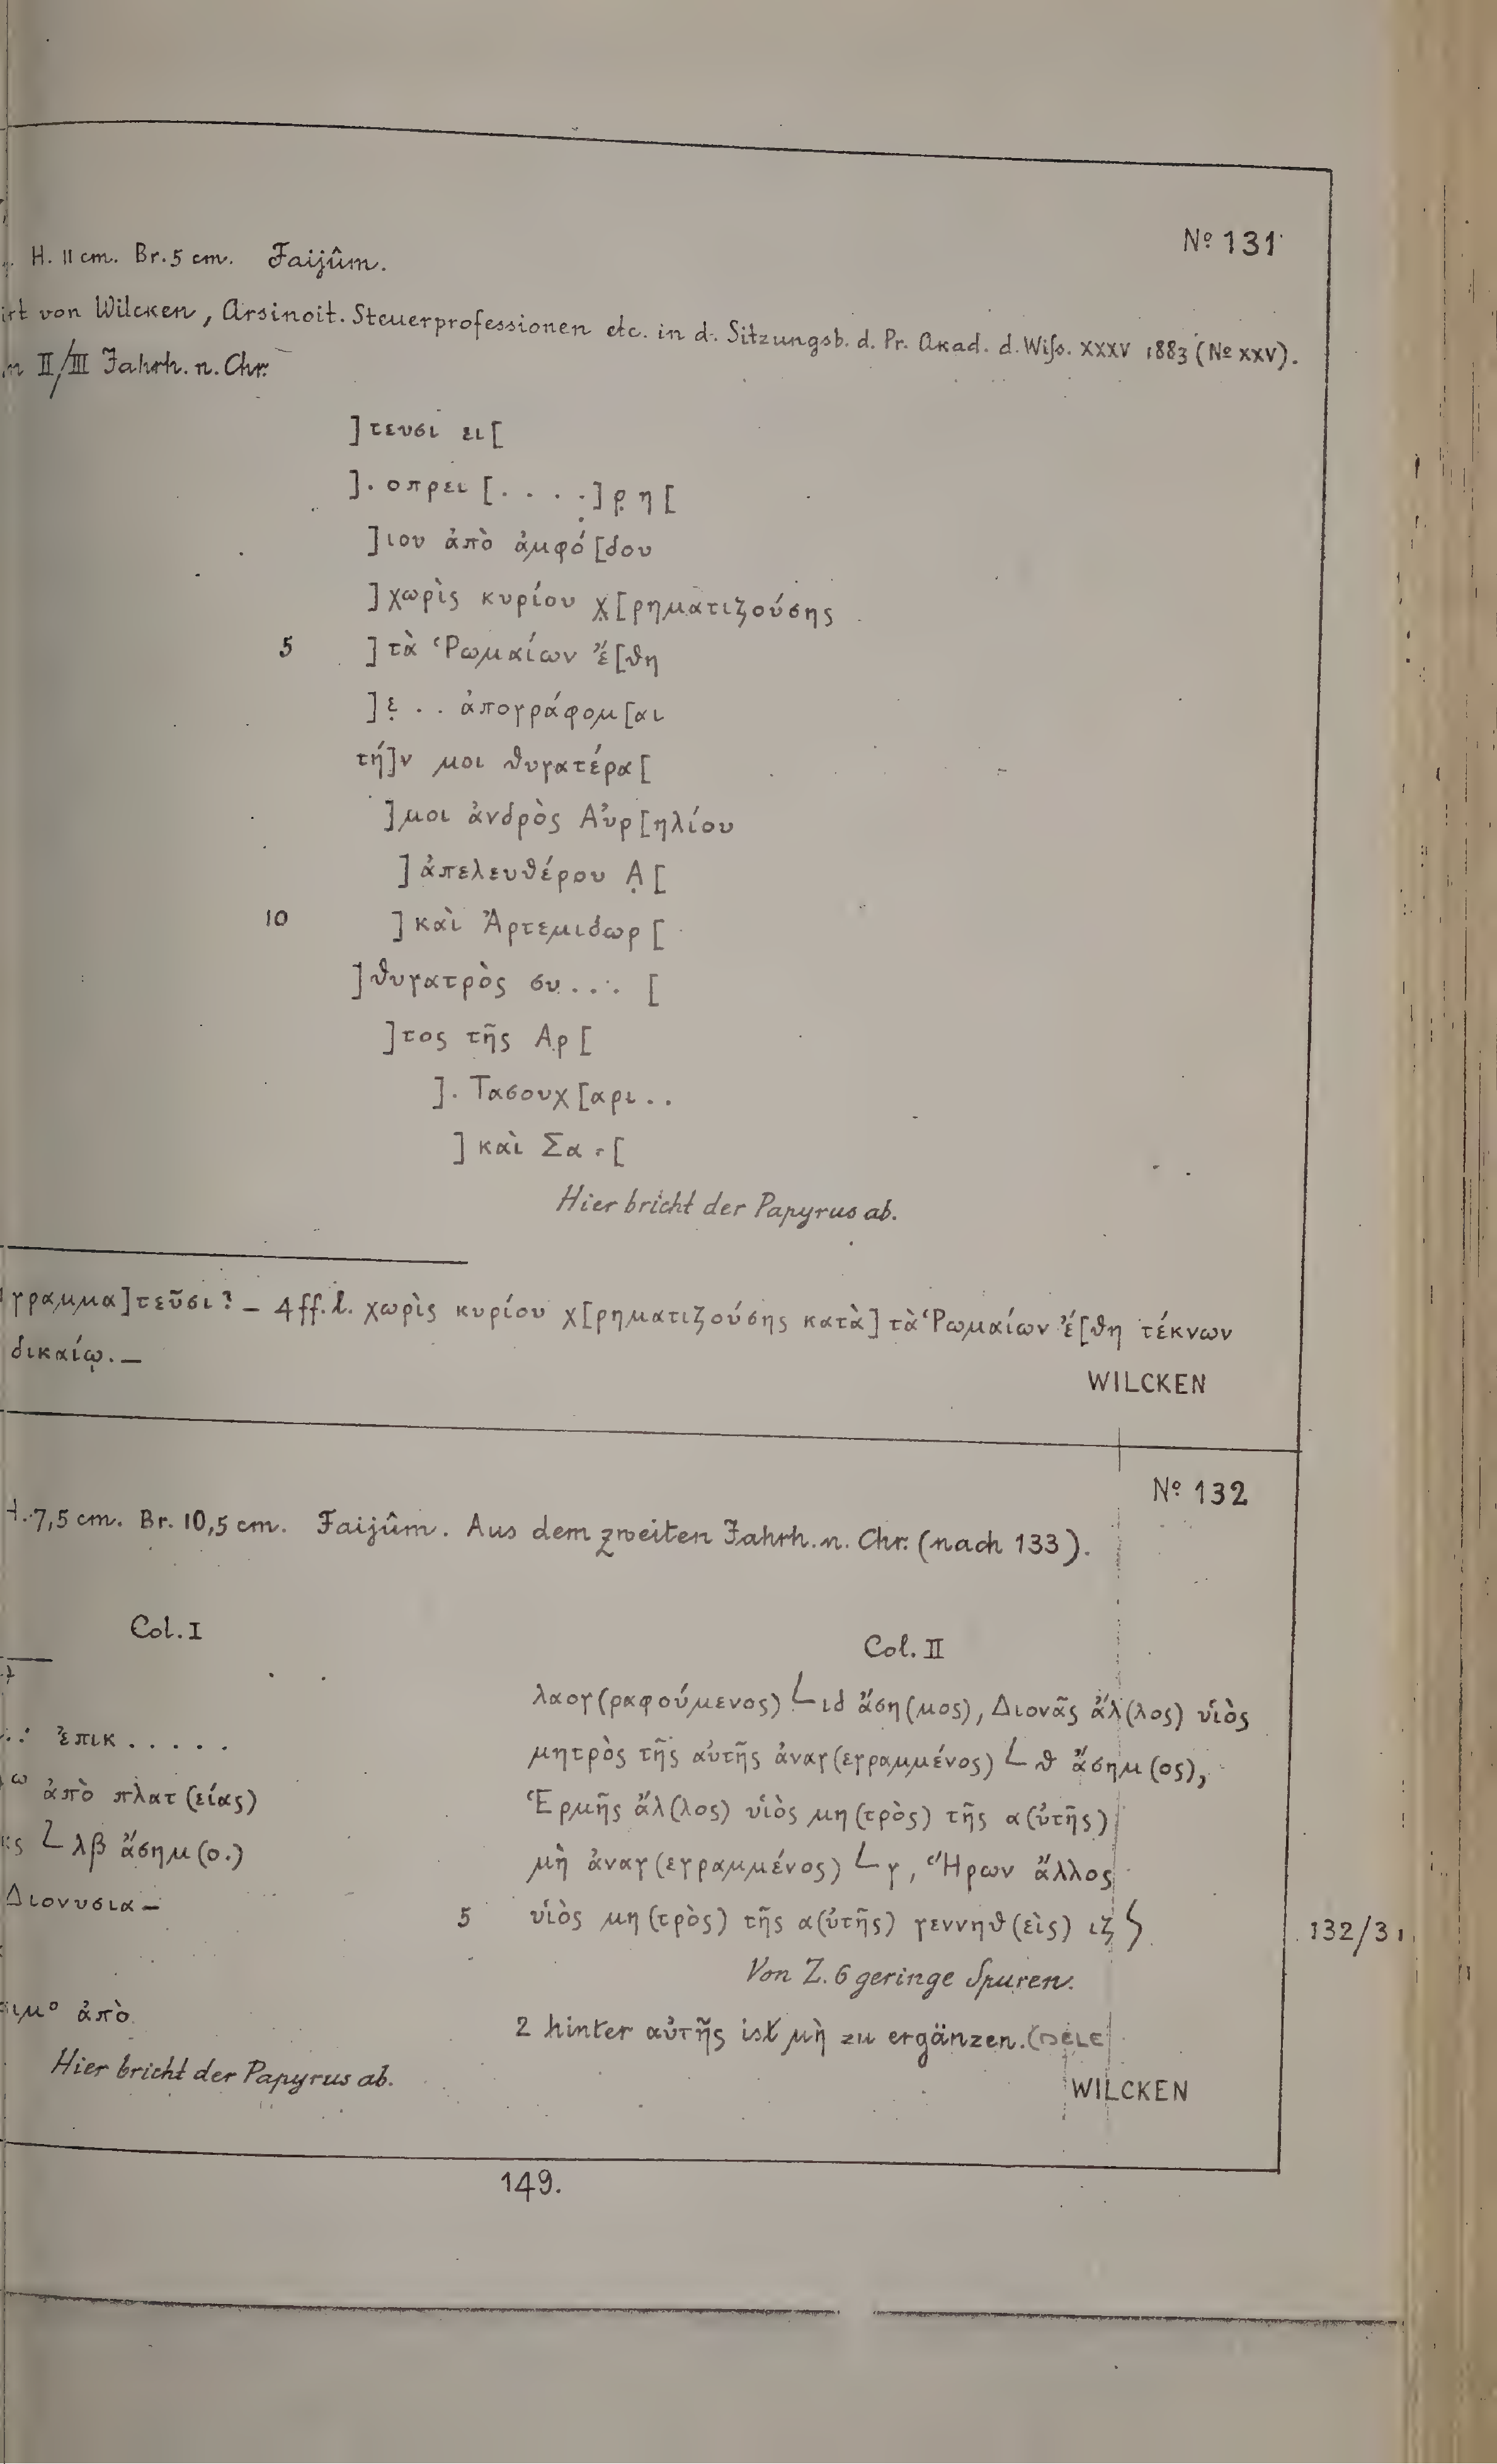 Nº 131
H. 11 cm. Br. 5 cm. Faijûm.
irt von Wilcken, Arsinoit. Steuerprofessionen etc. in d. Sitzungsb. d. Pr. Akad. d. Wiss. XXXV 1883 (Nº XXV).
II/III Jahrh. n. Chr.
] τευσι ει [
] . οπρει [ . . . . ] ρ̣ η [
] ιου ἀπὸ ἀμφό [δου
] χωρὶς κυρίου χ̣ [ρηματιζούσης
5 ] τὰ Ῥωμαίων ἔ [θη
] ε̣ . . ἀπογράφομ [αι
τή] ν μοι θυγατέρα [
] μοι ἀνδρὸς Αὐρ [ηλίου
] ἀπελευθέρου Α̣ [
10 ] καὶ Ἀρτεμιδωρ [
] θυγατρὸς συ . . . . [
] τος τῆς Αρ [
] . Τασουχ [αρι . .
] καὶ Σα . [
Hier bricht der Papyrus ab.
γραμμα] τεῦσι? – 4 ff. l. χωρὶς κυρίου χ [ρηματιζούσης κατὰ] τὰ Ῥωμαίων ἔ [θη τέκνων
δικαίῳ. –
WILCKEN
Nº 132
H. 7,5 cm. Br. 10,5 cm. Faijûm. Aus dem zweiten Jahrh. n. Chr. (nach 133).
Col. I
ἐπικ . . . . .
ω ἀπὸ πλατ (είας)
κς L λβ ἄσημ (ο.)
Διονυσια –
ιμο ἀπὸ
Hier bricht der Papyrus ab.
Col. II
λαογ (ραφούμενος) L ιδ ἄση (μος), Διονᾶς ἄλ (λος) υἱὸς
μητρὸς τῆς αὐτῆς ἀναγ (εγραμμένος) L θ ἄσημ (ος),
Ἑρμῆς ἄλ (λος) υἱὸς μη (τρὸς) τῆς α (ὐτῆς)
μὴ ἀναγ (εγραμμένος) L γ, Ἥρων ἄλλος
5 υἱὸς μη (τρὸς) τῆς α (ὐτῆς) γεννηθ (εὶς) ιζ S
Von Z. 6 geringe Spuren.
2 hinter αὐτῆς ist μὴ zu ergänzen. (DELE
WILCKEN
132/3
149.